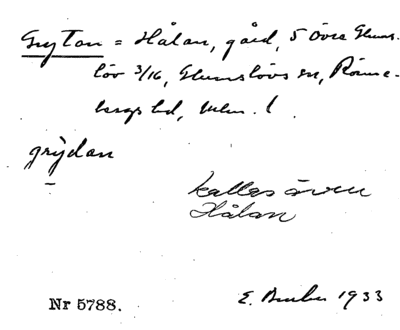 Gryton = Hålan, gård, 5 Övra Glums-
löv 3/16, Glumslövs sn, Rönne-
bergs hd, Mlm. l.
grỳdan
kallas även
Hålan
E. 1933
Nr 5788.